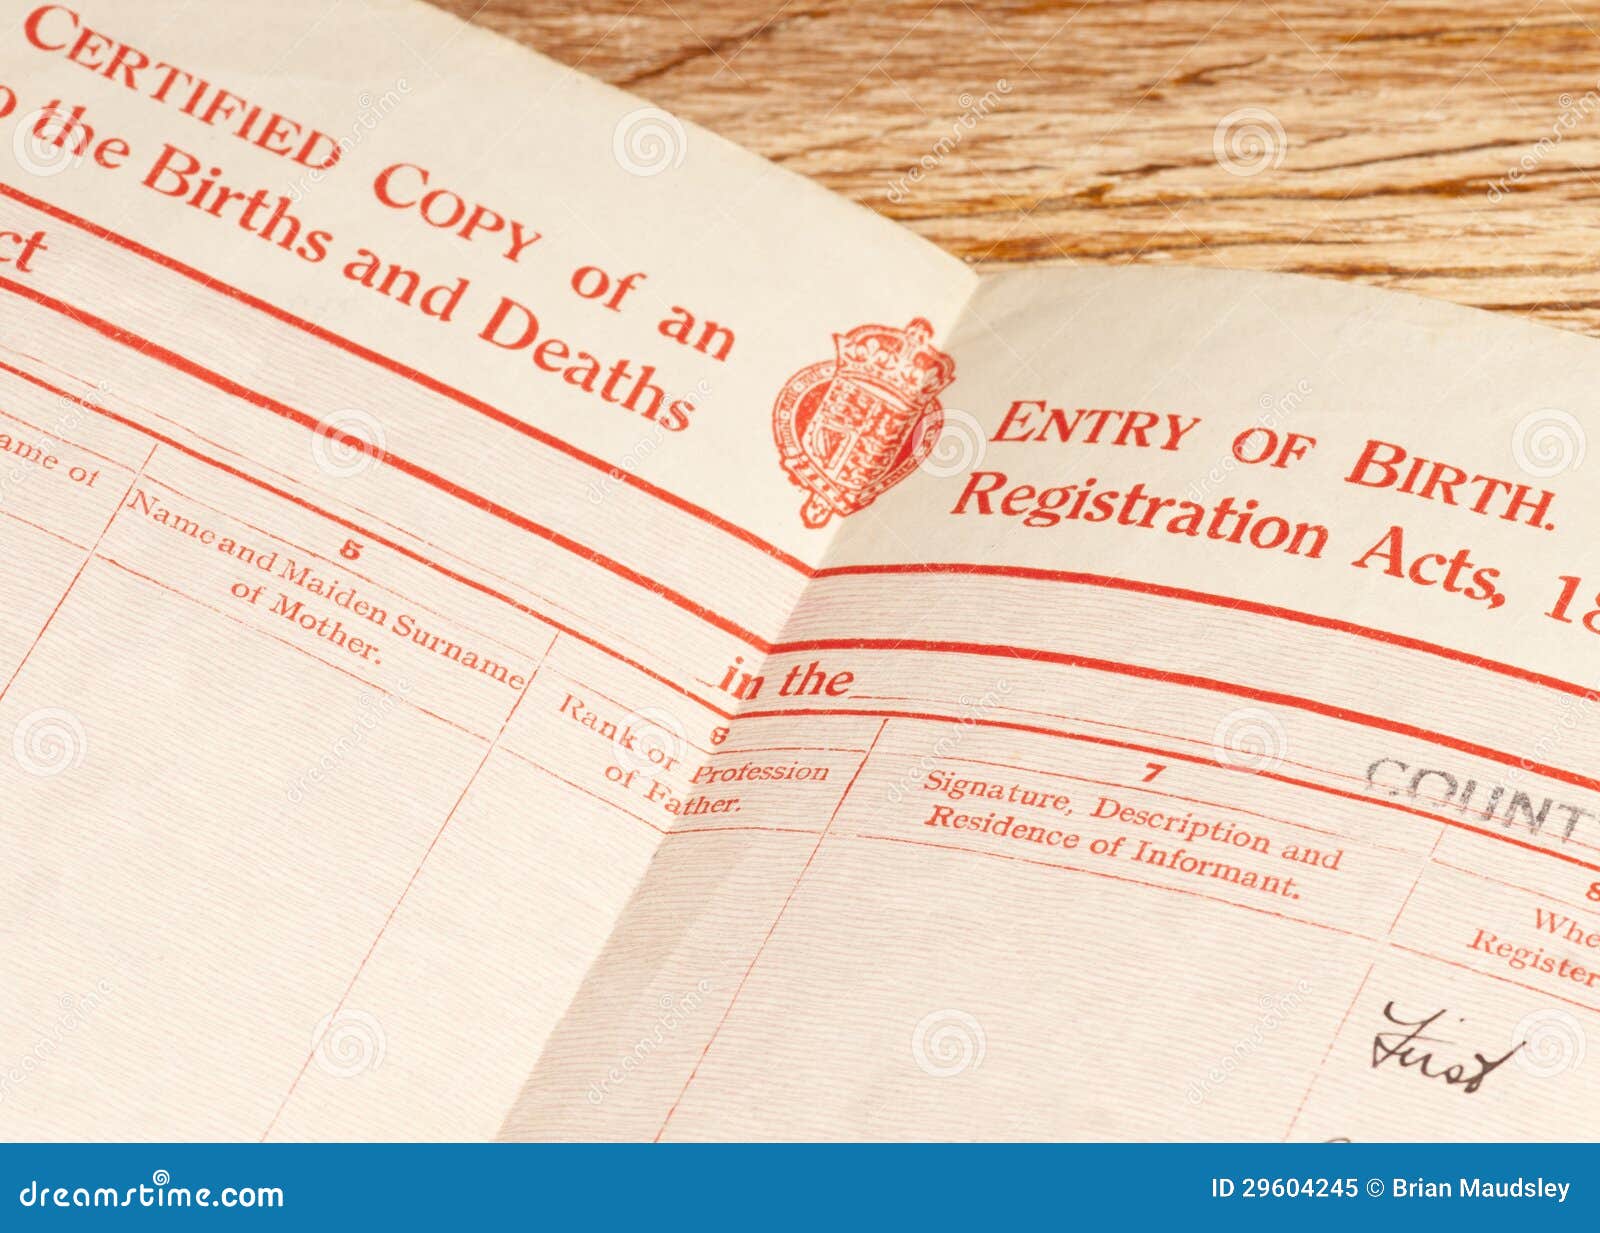 CERTIFIED COPY of an ENTRY OF BIRTH.
the Births and Deaths Registration Acts, 18
ct
in the
5
6
7
8
ame of
Name and Maiden Surname
of Mother.
Rank or Profession
of Father.
Signature, Description and
Residence of Informant.
COUNT
Whe
Register
First
dreamstime.com
ID 29604245 © Brian Maudsley